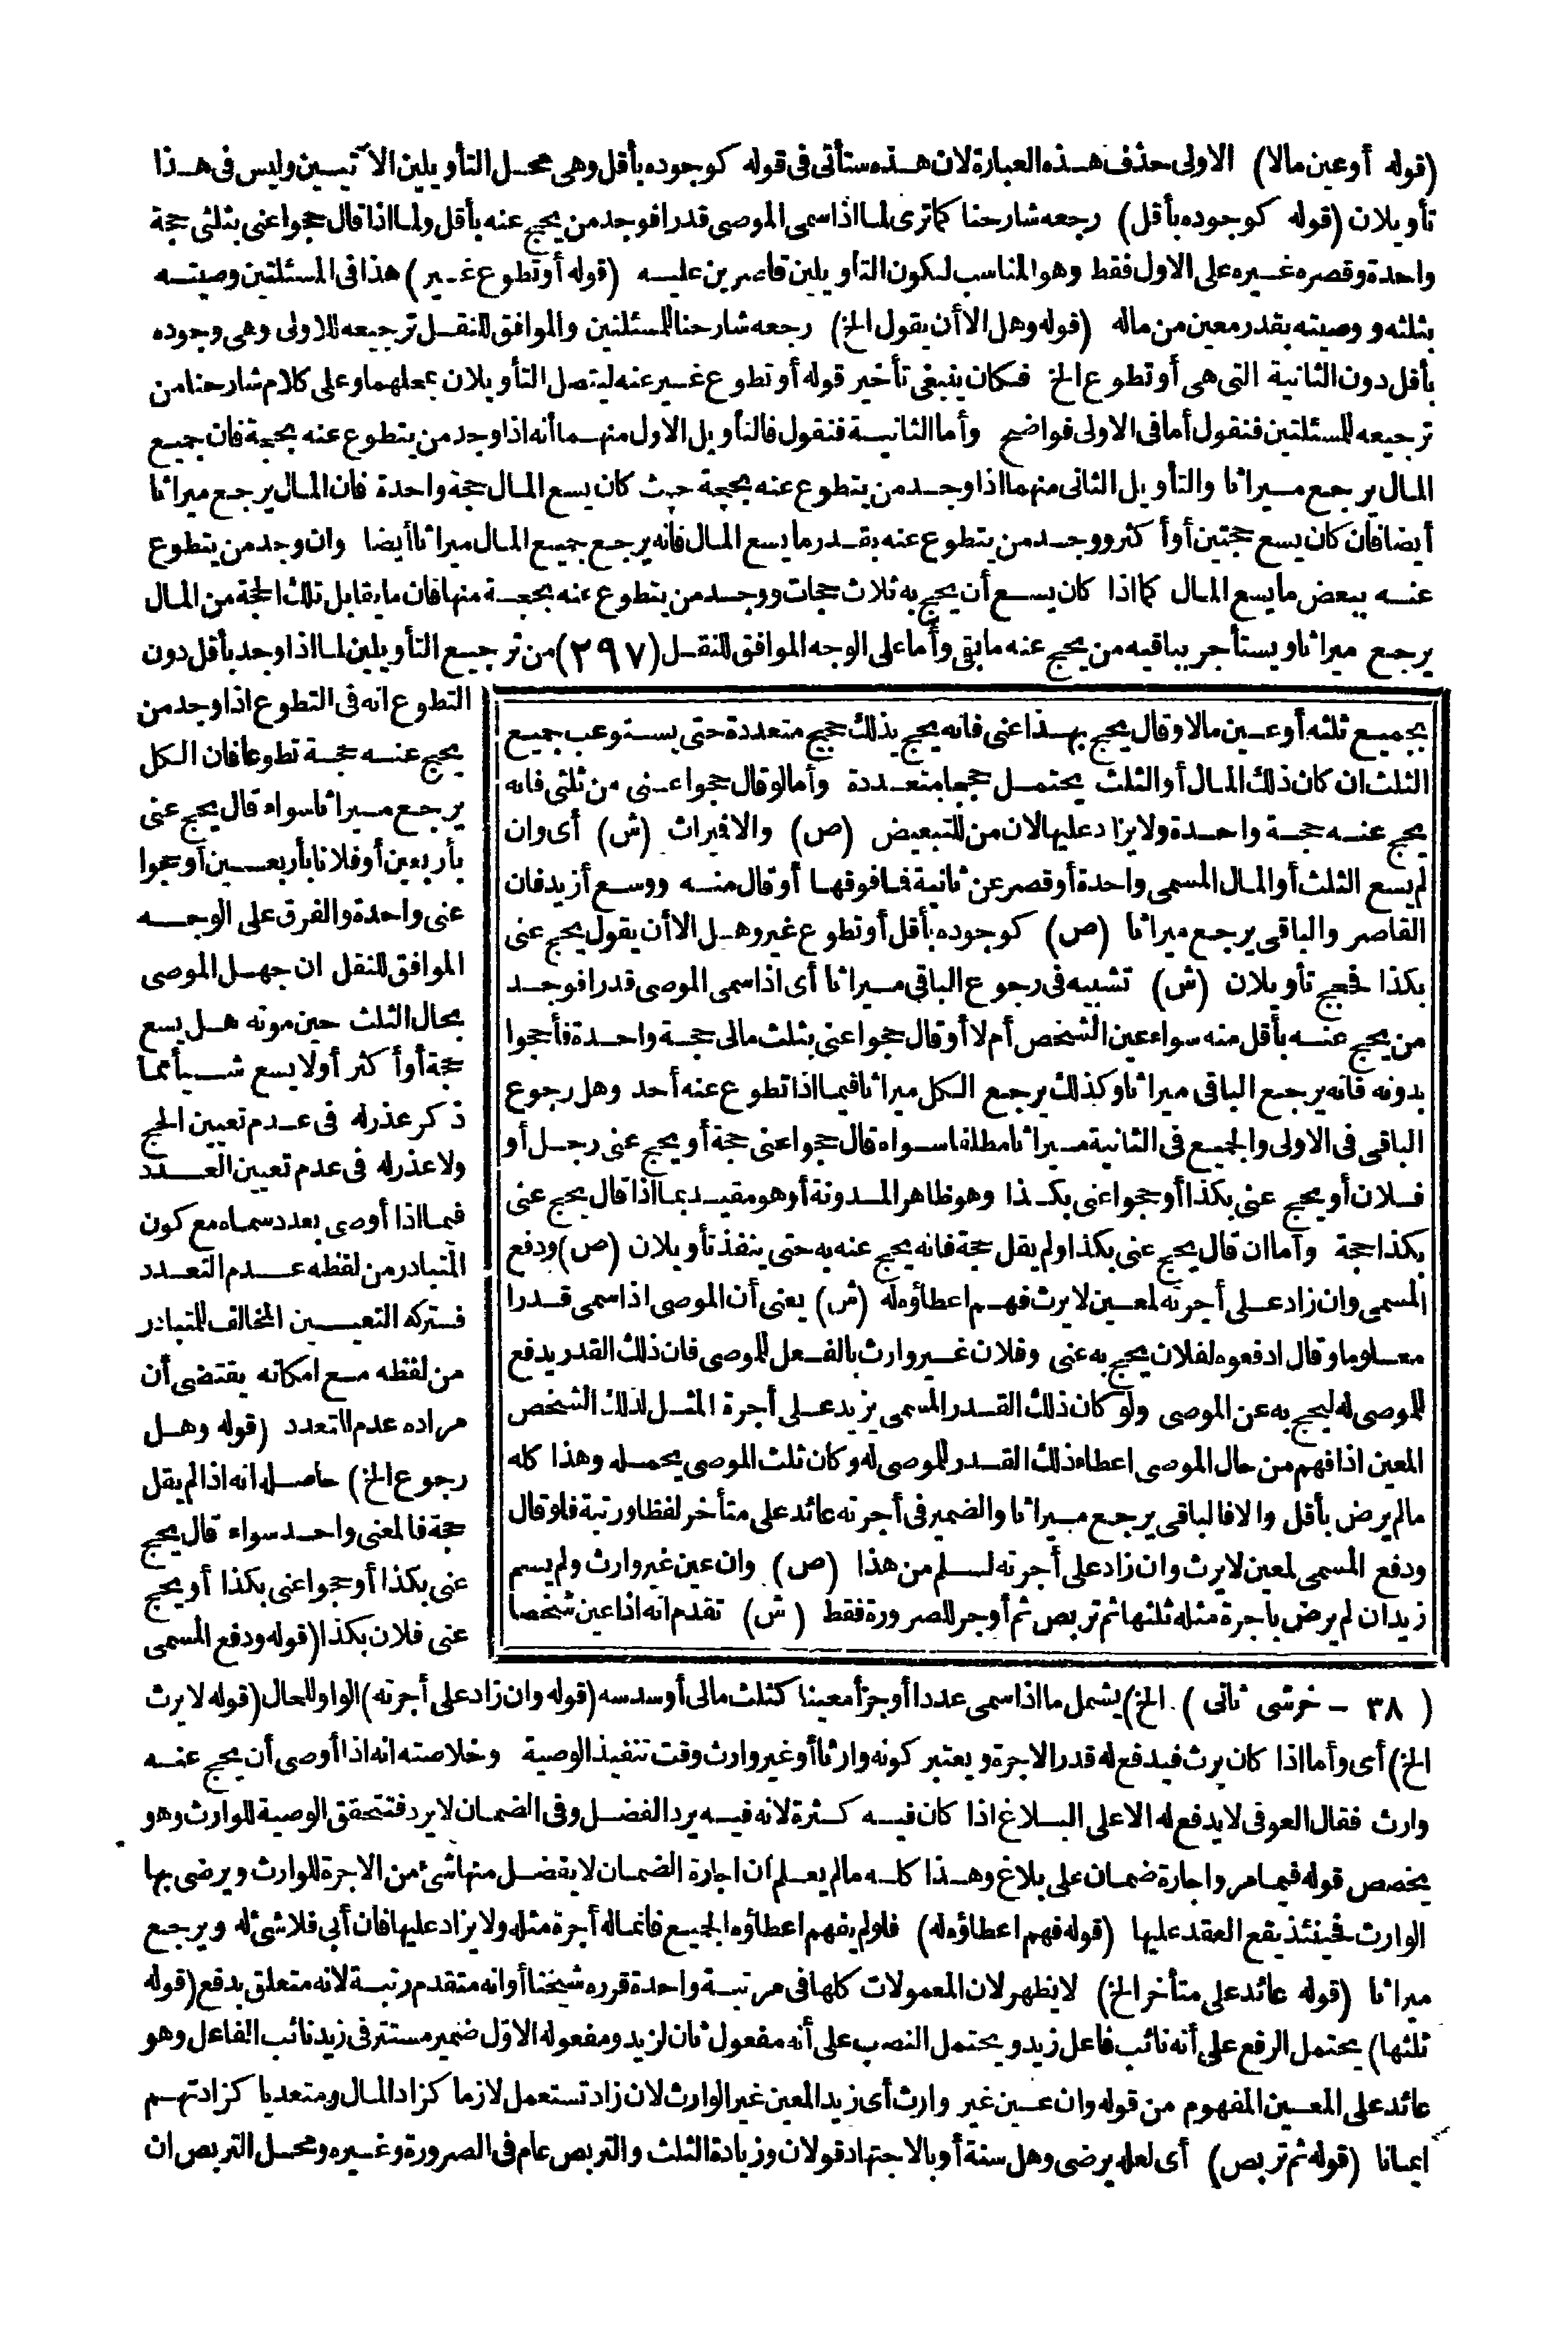 (قوله أو عين مالا) الاولى حذف هذه العبارة لان هذه ستأتى فى قوله كوجوده بأقل وهى محل التأويلين الآتيين وليس فى هذا
تأويلان (قوله كوجوده بأقل) رجعه شارحنا كما ترى لما اذا سمى الموصى قدرا فوجد من يحج عنه بأقل ولما اذا قال حجوا عنى بثلثى حجة
واحدة وقصره غيره على الاول فقط وهو المناسب لكون التأويلين قاصرين عليه (قوله أو تطوع غير) هذا فى المسئلتين وصيته
بثلثه و وصيته بقدر معين من ماله (قوله وهل الا أن يقول الخ) رجعه شارحنا للمسئلتين والموافق للنقل ترجيعه للاولى وهى وجوده
بأقل دون الثانية التى هى أو تطوع الخ فكان ينبغى تأخير قوله أو تطوع غير عنه ليتصل التأويلان بمحلهما وعلى كلام شارحنا من
ترجيعه للمسئلتين فنقول أما فى الاولى فواضح وأما الثانية فنقول فالتأويل الاول منهما أنه اذا وجد من يتطوع عنه بحجة فان جميع
المال يرجع ميراثا والتأويل الثانى منهما اذا وجد من يتطوع عنه بحجة حيث كان يسع المال حجة واحدة فان المال يرجع ميراثا
أيضا فان كان يسع حجتين أو أكثر ووجد من يتطوع عنه بقدر ما يسع المال فانه يرجع جميع المال ميراثا أيضا وان وجد من يتطوع
عنه ببعض ما يسع المال كما اذا كان يسع أن يحج به ثلاث حجات ووجد من يتطوع عنه بحجة منها فان ما يقابل تلك الحجة من المال
يرجع ميراثا ويستأجر بباقيه من يحج عنه ما بقى وأما على الوجه الموافق للنقل (٢٩٧) من ترجيع التأويلين لما اذا وجد بأقل دون
التطوع انه فى التطوع اذا وجد من
يحج عنه حجة تطوعا فان الكل
يرجع ميراثا سواء قال يحج عنى
بأربعين أو فلانا بأربعين أو حجوا
عنى واحدة والفرق على الوجه
الموافق للنقل ان جهل الموصى
بحال الثلث حين موته هل يسع
حجة أو أكثر أو لا يسع شيأ مما
ذكر عذر له فى عدم تعيين الحج
ولا عذر له فى عدم تعيين العدد
فيما اذا أوصى بعدد سماه مع كون
المتبادر من لفظه عدم التعدد
فتركه التعيين المخالف للمتبادر
من لفظه مع امكانه يقتضى أن
مراده عدم التعدد (قوله وهل
رجوع الخ) حاصله انه اذا لم يقل
حجة فالمعنى واحد سواء قال يحج
عنى بكذا أو حجوا عنى بكذا أو يحج
عنى فلان بكذا (قوله ودفع المسمى
بجميع ثلثه أو عين مالا وقال يحج بهذا عنى فانه يحج بذلك حجج متعددة حتى يستوعب جميع
الثلث ان كان ذلك المال أو الثلث يحتمل حججا متعددة وأما لو قال حجوا عنى من ثلثى فانه
يحج عنه حجة واحدة ولا يزاد عليها لان من للتبعيض (ص) والا فميراث (ش) أى وان
لم يسع الثلث أو المال المسمى واحدة أو قصر عن ثانية فما فوقها أو قال منه ووسع أزيد فان
القاصر والباقى يرجع ميراثا (ص) كوجوده بأقل أو تطوع غير وهل الا أن يقول يحج عنى
بكذا فحجج تأويلان (ش) تشبيه فى رجوع الباقى ميراثا أى اذا سمى الموصى قدرا فوجد
من يحج عنه بأقل منه سواء عين الشخص أم لا أو قال حجوا عنى بثلث مالى حجة واحدة فأحجوا
بدونه فانه يرجع الباقى ميراثا وكذلك يرجع الكل ميراثا فيما اذا تطوع عنه أحد وهل رجوع
الباقى فى الاولى والجميع فى الثانية ميراثا مطلقا سواء قال حجوا عنى حجة أو يحج عنى رجل أو
فلان أو يحج عنى بكذا أو حجوا عنى بكذا وهو ظاهر المدونة أو هو مقيد بما اذا قال يحج عنى
بكذا حجة وأما ان قال يحج عنى بكذا ولم يقل حجة فانه يحج عنه به حتى ينفذ تأويلان (ص) ودفع
المسمى وان زاد على أجرته لمعين لا يرث فهم اعطاؤه له (ش) يعنى أن الموصى اذا سمى قدرا
معلوما وقال ادفعوه لفلان يحج به عنى وفلان غير وارث بالفعل للموصى فان ذلك القدر يدفع
للموصى له ليحج به عن الموصى ولو كان ذلك القدر المسمى يزيد على أجرة المثل لذلك الشخص
المعين اذا فهم من حال الموصى اعطاء ذلك القدر للموصى له وكان ثلث الموصى يحمله وهذا كله
ما لم يرض بأقل والا فالباقى يرجع ميراثا والضمير فى أجرته عائد على متأخر لفظا ورتبة فلو قال
ودفع المسمى لمعين لا يرث وان زاد على أجرته لسلم من هذا (ص) وان عين غير وارث ولم يسم
زيد ان لم يرض بأجرة مثله ثلثها ثم تربص ثم أوجر للصرورة فقط (ش) تقدم انه اذا عين شخصا
(٣٨ - خرشى ثانى) الخ) يشمل ما اذا سمى عددا أو جزأ معينا كثلث مالى أو سدسه (قوله وان زاد على أجرته) الواو للحال (قوله لا يرث
الخ) أى وأما اذا كان يرث فيدفع له قدر الاجرة ويعتبر كونه وارثا أو غير وارث وقت تنفيذ الوصية وخلاصته انه اذا أوصى أن يحج عنه
وارث فقال العوفى لا يدفع له الا على البلاغ اذا كان فيه كثرة لانه فيه يرد الفضل وفى الضمان لا يرد فتتحقق الوصية للوارث وهو
يخصص قوله فيما مر واجارة ضمان على بلاغ وهذا كله ما لم يعلم أن اجارة الضمان لا يفضل منها شئ من الاجرة للوارث ويرضى بها
الوارث فحينئذ يقع العقد عليها (قوله فهم اعطاؤه له) فلو لم يفهم اعطاؤه الجميع فانما له أجرة مثله ولا يزاد عليها فان أبى فلا شئ له ويرجع
ميراثا (قوله عائد على متأخر الخ) لا يظهر لان المعمولات كلها فى مرتبة واحدة قرره شيخنا أو انه متقدم رتبة لانه متعلق بدفع (قوله
ثلثها) يحتمل الرفع على أنه نائب فاعل زيد ويحتمل النصب على أنه مفعول ثان لزيد ومفعوله الاوّل ضمير مستتر فى زيد نائب الفاعل وهو
عائد على المعين المفهوم من قوله وان عين غير وارث أى زيد المعين غير الوارث لان زاد تستعمل لازما كزاد المال ومتعديا كزادتهم
ايمانا (قوله ثم تربص) أى لعله يرضى وهل سنة أو بالاجتهاد قولان وزيادة الثلث والتربص عام فى الصرورة وغيره ومحل التربص ان